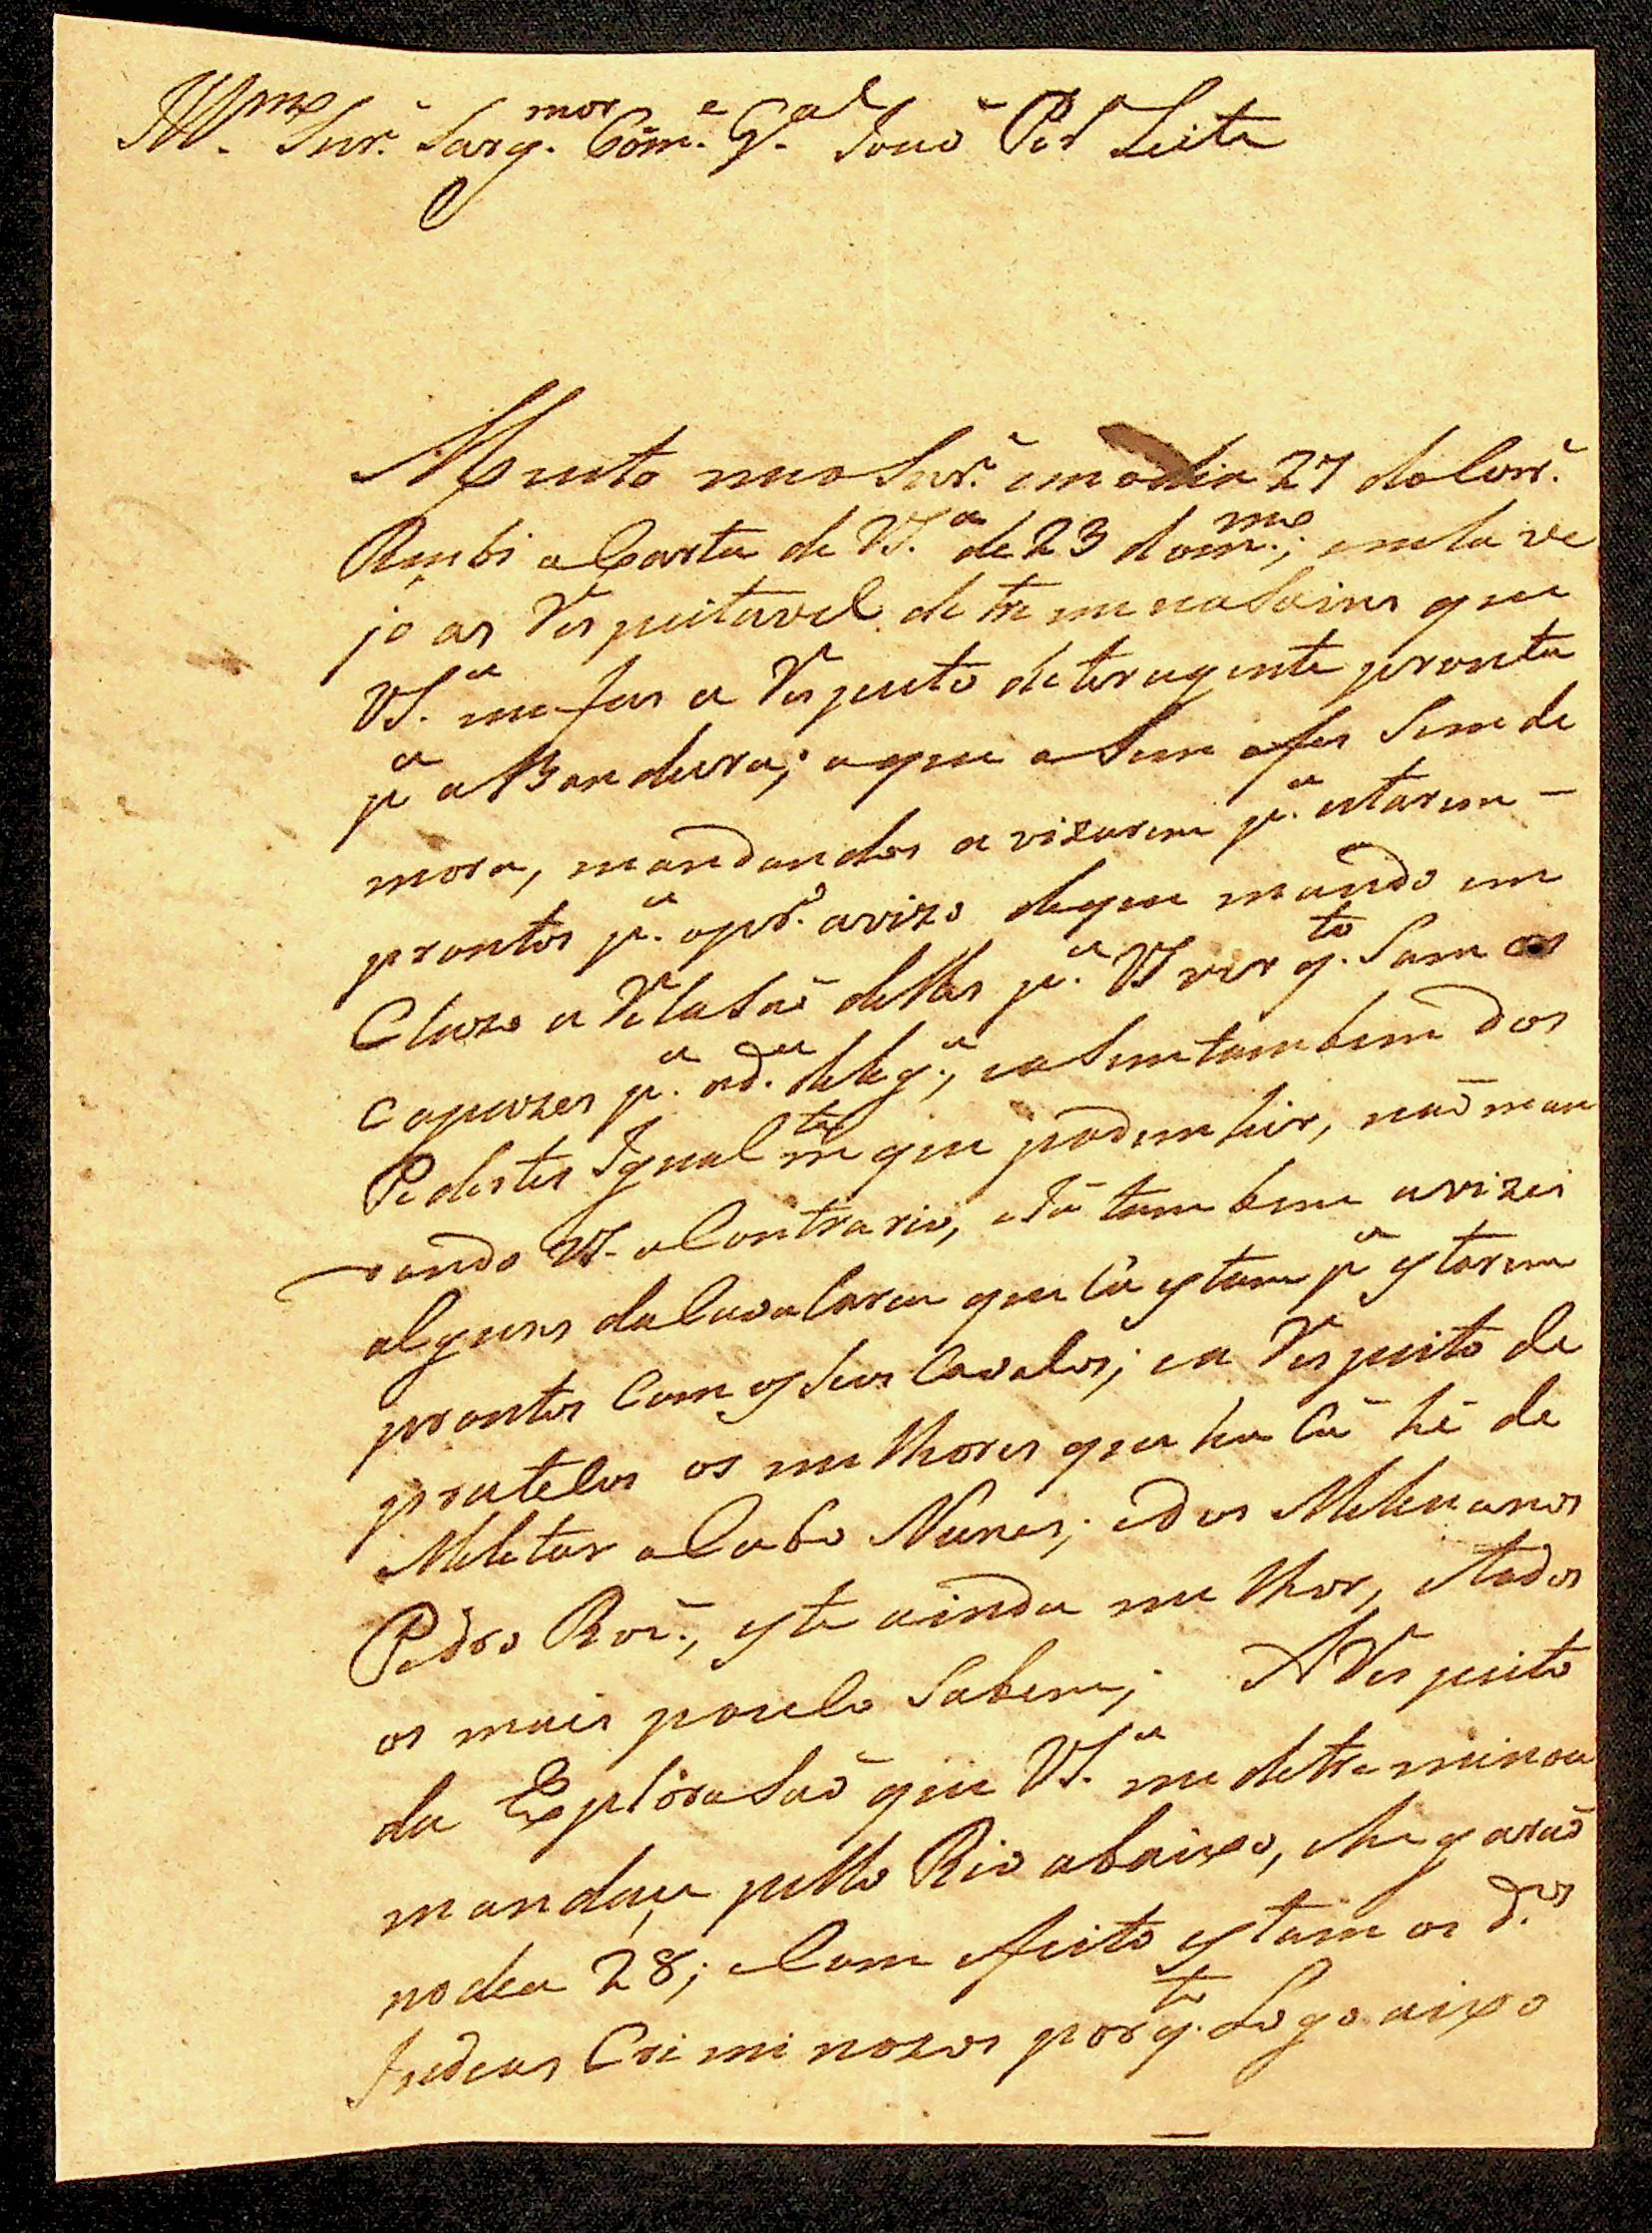 Ill.mo Snr. Sarg.mor Com.e G.al João Per.ª Leite
Muito meo Snr. em o dia 27 do Corr.e
Recebi a Carta de VS.a de 23 do m.mo; em la ve
jo as Respeitavel detremenasoins que
VS.a me fas a Respeito deter agente pronta
p.a a Bandeira; aque a Sim afis Sem de
mora, mandandos a vizarem p.a estarem —
prontos p.a opr.o avizo deque mando em
Cluzo a Relasaõ delles p.a VS ver q.to Sam os
Capazes p.a ad.a delig.a, ea Sim tambem dos
Pedestes Igualm.te que podem hir, naõ man
dando VS. o Contrario, e Já tambem avizei
alguns da Cavalaria que Cá estam p.a estarem
prontos Com os Seus Cavalos; ea Respeito de
pratecos os milhores que ha Cá hé de
Meletar o Cabo Nunes; e dos Melecianos
Pedro Roiz, este ainda milhor, e todos
os mais pouco Sabem; A Respeito
da Explorasaõ que VS.a me detreminou
mandaçe pello Rio abaixo, chegaraõ
no dia 28; e Com efeito estam os d.os
Indeus Criminozos por q.to Logo aixo